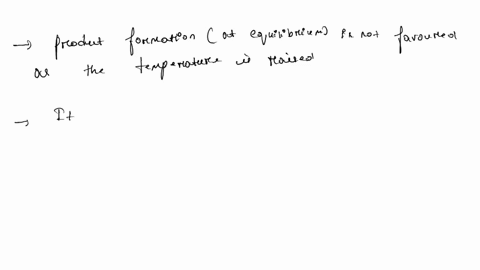 → Product formation (at equilibrium) is not favoured
as the temperature is raised
→ It